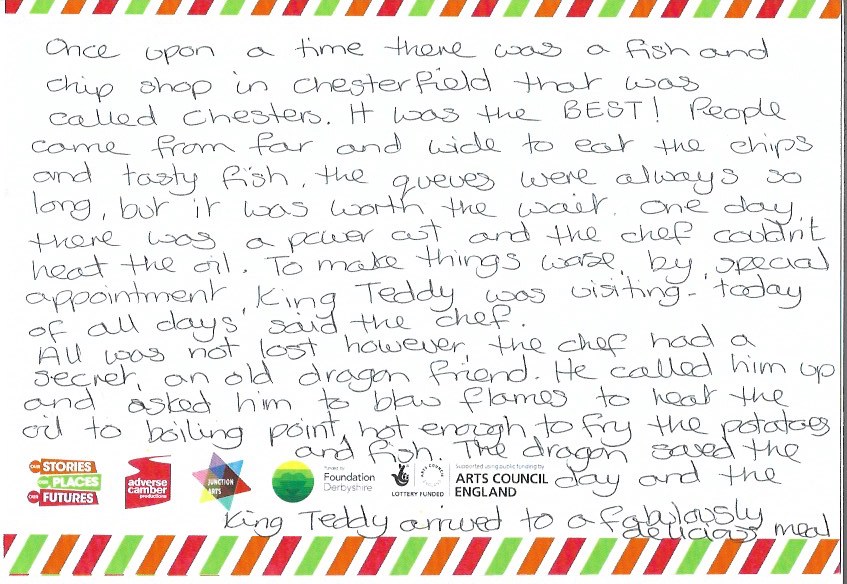 Once upon a time there was a fish and
chip shop in chesterfield that was
called chesters. It was the BEST! People
came from far and wide to eat the chips
and tasty fish, the queues were always so
long, but it was worth the wait. One day,
there was a power cut and the chef couldn't
heat the oil. To make things worse, by special
appointment, King Teddy was visiting - today
of all days, said the chef.
All was not lost however, the chef had a
secret, an old dragon friend. He called him up
and asked him to blow flames to heat the
oil to boiling point, hot enough to fry the potatoes
and fish. The dragon saved the
day and the
King Teddy arrived to a fabulously
delicious meal
OUR STORIES
OUR PLACES
OUR FUTURES
adverse
camber
productions
JUNCTION
ARTS
Funded by
Foundation
Derbyshire
LOTTERY FUNDED
Supported using public funding by
ARTS COUNCIL
ENGLAND